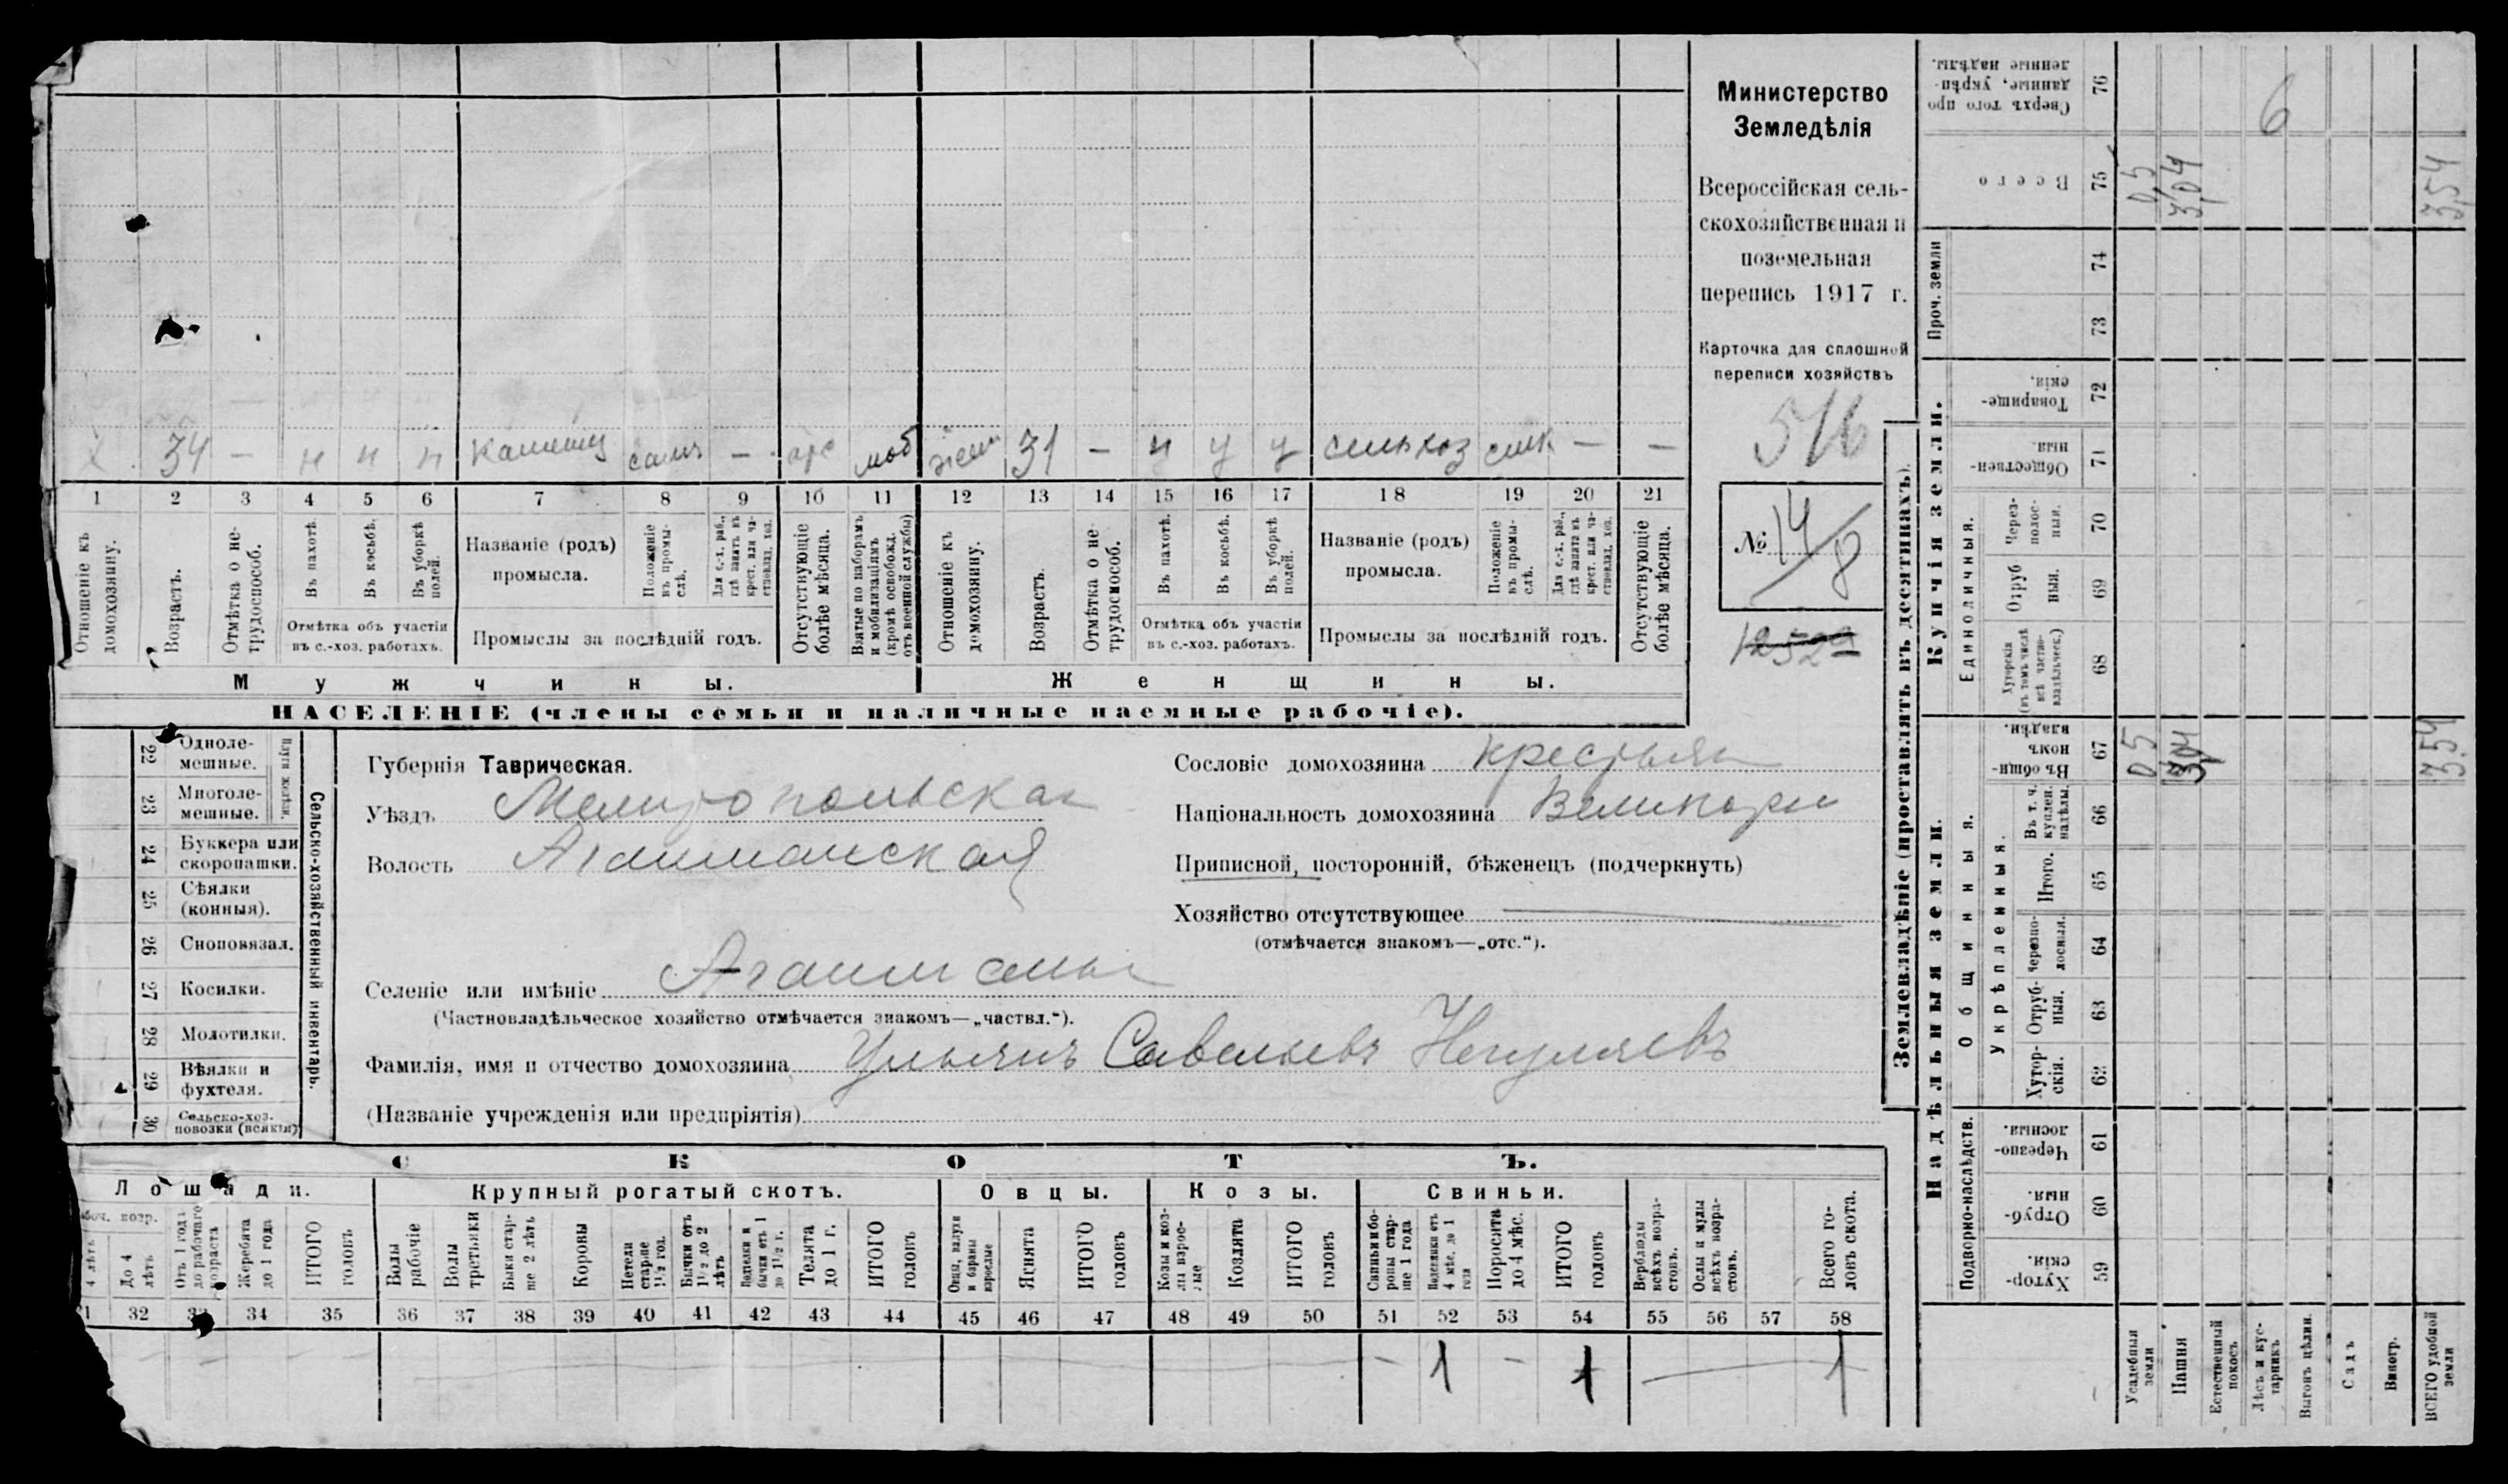 Министерство
Земледѣлія
Всероссійская сель-
скохозяйственная и
поземельная
перепись 1917 г.
Карточка для сплошной
переписи хозяйствъ
516
№ 14/8
12529
х 34 — н н н сам — отс моб жена 31 — н у у сельхоз — —
1 2 3 4 5 6 7 8 9 10 11 12 13 14 15 16 17 18 19 20 21
Отношеніе къ домохозяину.
Возрастъ.
Отмѣтка о не-трудоспособ.
Въ пахотѣ.
Въ косьбѣ.
Въ уборкѣ полей.
Отмѣтка объ участіи
въ с.-хоз. работахъ.
Названіе (родъ)
промысла.
Положеніе въ промы-слѣ.
Для с.-х. раб., гдѣ занятъ въ крест. или ча-стновлад. хоз.
Промыслы за послѣдній годъ.
Отсутствующіе болѣе мѣсяца.
Взятые по наборамъ и мобилизаціямъ (кромѣ освобожд. отъ военной службы)
Отношеніе къ домохозяину.
Возрастъ.
Отмѣтка о не-трудоспособ.
Въ пахотѣ.
Въ косьбѣ.
Въ уборкѣ полей.
Отмѣтка объ участіи
въ с.-хоз. работахъ.
Названіе (родъ)
промысла.
Положеніе въ промы-слѣ.
Для с.-х. раб., гдѣ занята въ крест. или ча-стновлад. хоз.
Промыслы за послѣдній годъ.
Отсутствующіе болѣе мѣсяца.
Мужчины.
Женщины.
НАСЕЛЕНІЕ (члены семьи и наличные наемные рабочіе).
Сельско-хозяйственный инвентарь.
22 Одноле-мешные.
23 Многоле-мешные.
24 Буккера или скоропашки.
25 Сѣялки (конныя).
26 Сноповязал.
27 Косилки.
28 Молотилки.
29 Вѣялки и фухтеля.
30 Сельско-хоз. повозки (всякія)
Губернія Таврическая.
Уѣздъ Мелитопольская
Волость Агайманская
Селеніе или имѣніе Агайманы
(Частновладѣльческое хозяйство отмѣчается знакомъ—„частвл.“).
Фамилія, имя и отчество домохозяина Ульянъ Савельевъ Негуляевъ
(Названіе учрежденія или предпріятія)
Сословіе домохозяина крестьян
Національность домохозяина Великорос
Приписной, посторонній, бѣженецъ (подчеркнуть)
Хозяйство отсутствующее —
(отмѣчается знакомъ—„отс.“).
СКОТЪ.
Лошади.
Крупный рогатый скотъ.
Овцы.
Козы.
Свиньи.
4 лѣтъ
До 4 лѣтъ
Отъ 1 года до рабочаго возраста
Жеребята до 1 года
ИТОГО головъ
Волы рабочіе
Волы третьяки
Быки стар-ше 2 лѣтъ
Коровы
Нетели старше 1½ год.
Бычки отъ 1½ до 2 лѣтъ
Подтелки и бычки отъ 1 до 1½ г.
Телята до 1 г.
ИТОГО головъ
Овцы, валухи и бараны взрослые
Ягнята
ИТОГО головъ
Козы и коз-лы взрос-лые
Козлята
ИТОГО головъ
Свиньи и бо-ровы стар-ше 1 года
Подсвинки отъ 4 мѣс. до 1 года
Поросята до 4 мѣс.
ИТОГО головъ
Верблюды всѣхъ возра-стовъ.
Ослы и мулы всѣхъ возра-стовъ.
Всего го-ловъ скота.
32 33 34 35 36 37 38 39 40 41 42 43 44 45 46 47 48 49 50 51 52 53 54 55 56 57 58
— 1 — 1 — 1
Землевладѣніе (проставлять въ десятинахъ).
Надѣльныя земли.
Купчія земли.
Проч. земли
Подворно-наслѣдств.
Общинныя.
Укрѣпленныя.
Единоличныя.
Сверхъ того про-данные, укрѣп-ленные надѣлы. 76
Всего 75 0,5 3,04 3,54
6
74
73
Товарище-скія. 72
Обществен-ныя. 71
Через-полос-ныя. 70
Отруб-ныя. 69
Хуторскія (въ томъ числѣ всѣ частно-владѣльческ.) 68
Въ общи-номъ владѣн. 67 0,5 3,04 3,54
Въ т. ч. куплен. надѣлы. 66
Итого. 65
Черезпо-лосныя. 64
Отруб-ныя. 63
Хутор-скія. 62
Черезпо-лосныя. 61
Отруб-ныя. 60
Хутор-скія. 59
Усадебныя земли
Пашня
Естественный покосъ
Лѣсъ и кус-тарникъ
Выгонъ цѣлин.
Садъ
Виногр.
ВСЕГО удобной земли